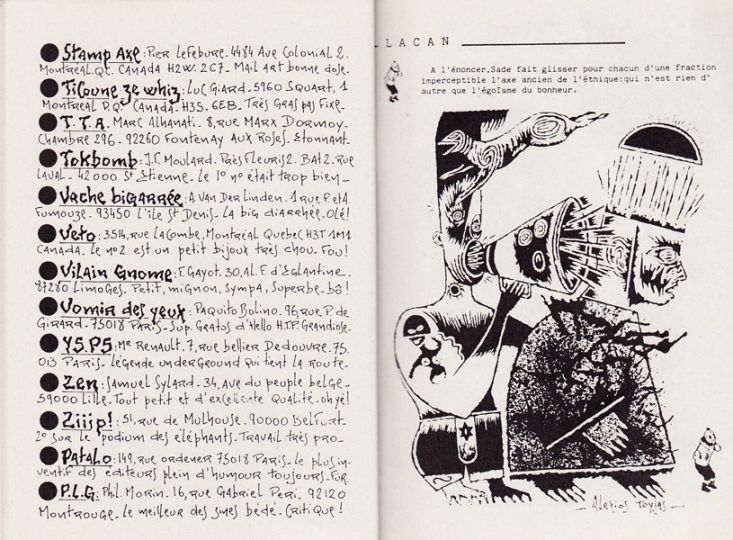 Stamp Axe: Pier Lefebure. 4484 Ave Colonial 2.
Montréal. QC. Canada H2W. 2C7 - Mail art bonne dose.
Ticoune ze whiz: Luc Giard. 5960 Squart, 1
Montréal P.Q. Canada. H3S. 6E8. Très gras pas fixe.
T.T.A. Marc Alhanati. 8, rue Marx Dormoy.
Chambre 296. 92260 Fontenay aux Roses. Etonnant.
Tokbomb: J.F. Moulard. Près Fleuris 2. Bat 2. rue
Laval. 42000 St Etienne. Le 1° n° était trop bien -
Vache bigarrée: A. Van Der Linden. 1 rue P. et A.
Fumouze. 93450 L'ile St Denis. La big diarrhée. Olé!
Veto: 3514, rue Lacombe, Montréal Quebec H3T 1M1
Canada. Le no2 est un petit bijoux très chou. Fou!
Vilain Gnome: F. Gayot. 30, Al. F. d'Eglantine.
87280 Limoges. Petit, mignon, sympa, superbe. bô!
Vomir des yeux: Paquito Bolino. 96, rue P. de
Girard. 75018 Paris. Sup. Gratos d'Hello H.I.P. Grandiose.
Y5.P5: Mr Renault. 7, rue bellier Dedouvre. 75.
013 Paris. Légende underground qui tient la route.
Zen: Samuel Sylard. 34, Ave du peuple belge.
59000 Lille. Tout petit et d'excellente qualité. oh yé!
Ziiip!: 51, rue de Mulhouse. 90000 Belfort.
2° sur le podium des éléphants. Travail très pro.
Patalo: 149, rue ordener 75018 Paris. le plus in-
ventif des éditeurs plein d'humour toujours. Fur
P.L.G: Phil. Morin. 16, rue Gabriel Peri. 92120
Montrouge. le meilleur des zines bédé. Critique!
LACAN
A l'énoncer,Sade fait glisser pour chacun d'une fraction
imperceptible l'axe ancien de l'éthique:qui n'est rien d'
autre que l'égoïsme du bonheur.
- Alexios Tjoyas -